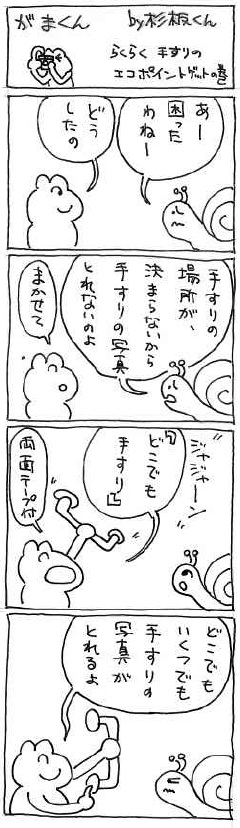 がまくん
by杉板くん
らくらく手すりの
エコポイントゲットの巻
あー
困った
わねー
どう
したの
手すりの
場所が、
決まらないから
手すりの写真
とれないのよ
まかせて
ジャジャーン
『どこでも
手すり』
両面テープ付
どこでも
いくつでも
手すりの
写真が
とれるよ